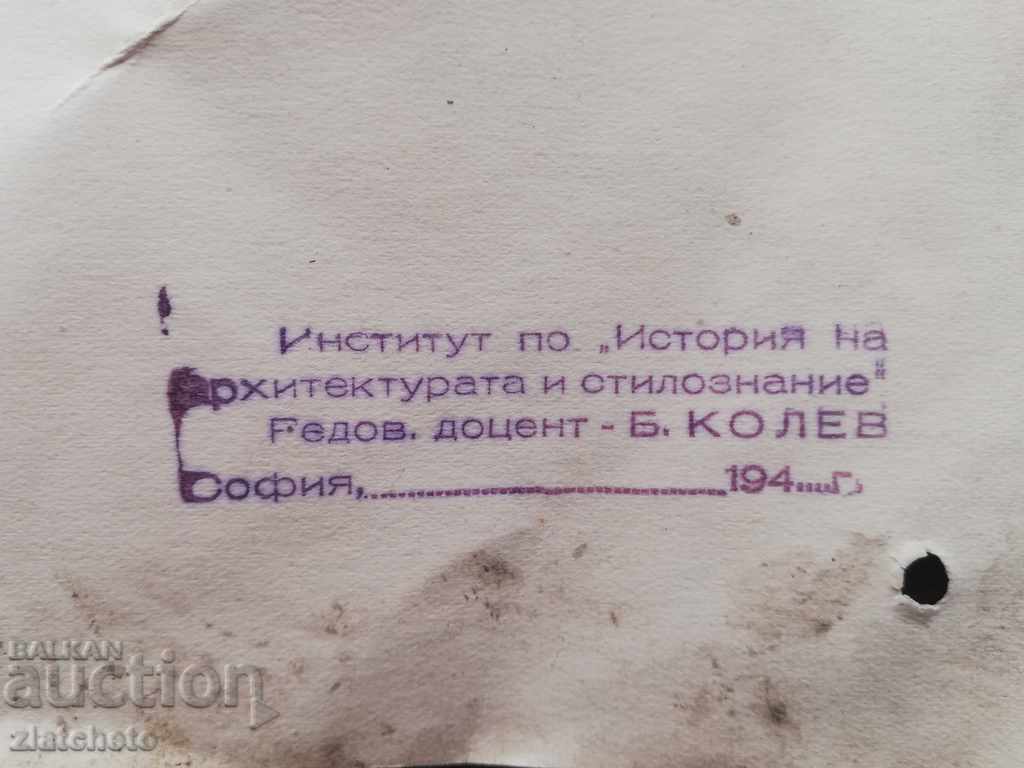 Институт по „История на
архитектурата и стилознание"
Редов. доцент - Б. КОЛЕВ
София,........................194....г.
BALKAN
auction
zlatchoto